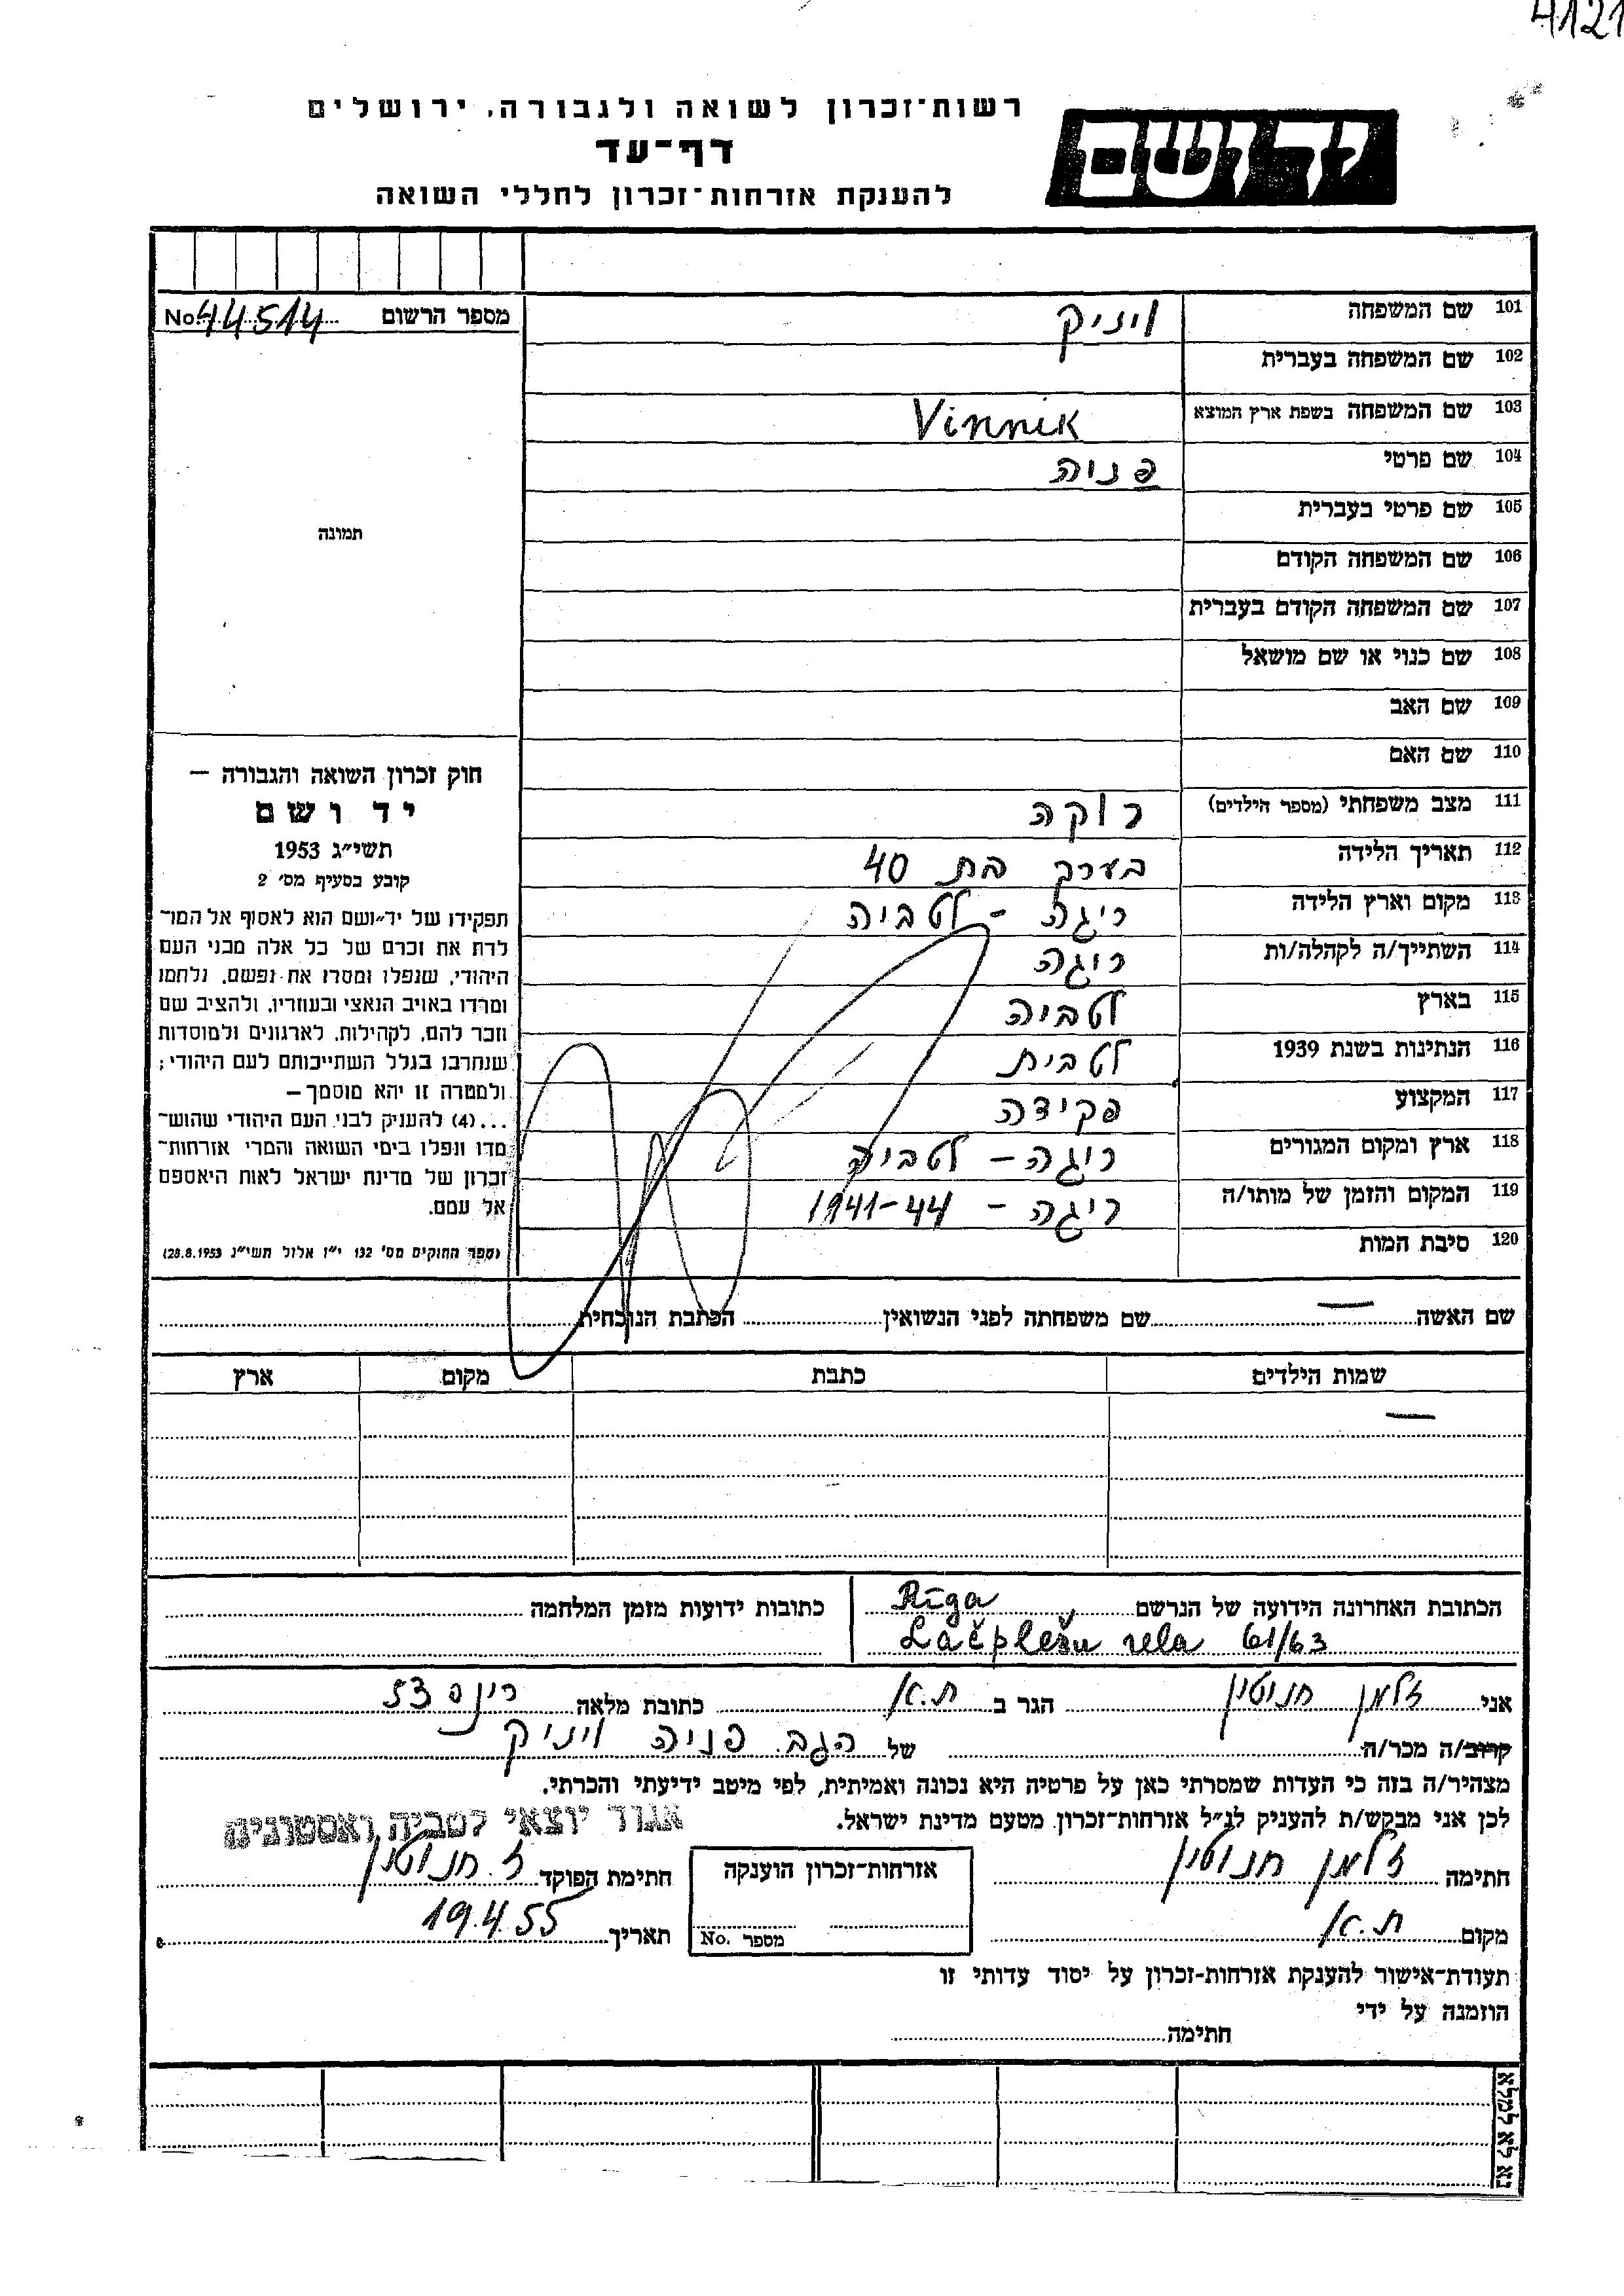 4121
רשות־זכרון לשואה ולגבורה, ירושלים
דף־עד
להענקת אזרחות־זכרון לחללי השואה
יד ושם
No. 44514 מספר הרשום
תמונה
חוק זכרון השואה והגבורה —
יד ושם
תשי״ג 1953
קובע בסעיף מס׳ 2
תפקידו של יד־ושם הוא לאסוף אל המו־
לדת את זכרם של כל אלה מבני העם
היהודי, שנפלו ומסרו את נפשם, נלחמו
ומרדו באויב הנאצי ובעוזריו, ולהציב שם
וזכר להם, לקהילות, לארגונים ולמוסדות
שנחרבו בגלל השתייכותם לעם היהודי;
ולמטרה זו יהא מוסמך —
...(4) להעניק לבני העם היהודי שהוש־
מדו ונפלו בימי השואה והמרי אזרחות־
זכרון של מדינת ישראל לאות היאספם
אל עמם.
(ספר החוקים מס׳ 132 י״ז אלול תשי״ג 28.8.1953)
101 שם המשפחה ויניק
102 שם המשפחה בעברית
103 שם המשפחה בשפת ארץ המוצא Vinnik
104 שם פרטי פניה
105 שם פרטי בעברית
106 שם המשפחה הקודם
107 שם המשפחה הקודם בעברית
108 שם כנוי או שם מושאל
109 שם האב
110 שם האם
111 מצב משפחתי (מספר הילדים) רוקה
112 תאריך הלידה בערך בת 40
113 מקום וארץ הלידה ריגה – לטביה
114 השתייך/ה לקהלה/ות ריגה
115 בארץ לטביה
116 הנתינות בשנת 1939 לטבית
117 המקצוע פקידה
118 ארץ ומקום המגורים ריגה – לטביה
119 המקום והזמן של מותו/ה ריגה – 1941-44
120 סיבת המות
שם האשה — שם משפחתה לפני הנשואין הכתבת הנוכחית
שמות הילדים כתבת מקום ארץ
—
הכתובת האחרונה הידועה של הנרשם Rīga
Lačplešu iela 61/63
כתובות ידועות מזמן המלחמה
אני זלמן חנוטין הגר ב ת.א. כתובת מלאה רינס 53
קרוב/ה מכר/ה של הגב. פניה ויניק
מצהיר/ה בזה כי העדות שמסרתי כאן על פרטיה היא נכונה ואמיתית, לפי מיטב ידיעתי והכרתי.
לכן אני מבקש/ת להעניק לנ״ל אזרחות־זכרון מטעם מדינת ישראל.
אגוד יוצאי לטביה ואסטוניה
חתימה זלמן חנוטין
אזרחות־זכרון הוענקה
חתימת הפוקד ז. חנוטין
מקום ת.א.
מספר No.
תאריך 19.4.55
תעודת־אישור להענקת אזרחות־זכרון על יסוד עדותי זו
הוזמנה על ידי
חתימה
נא לא למלא